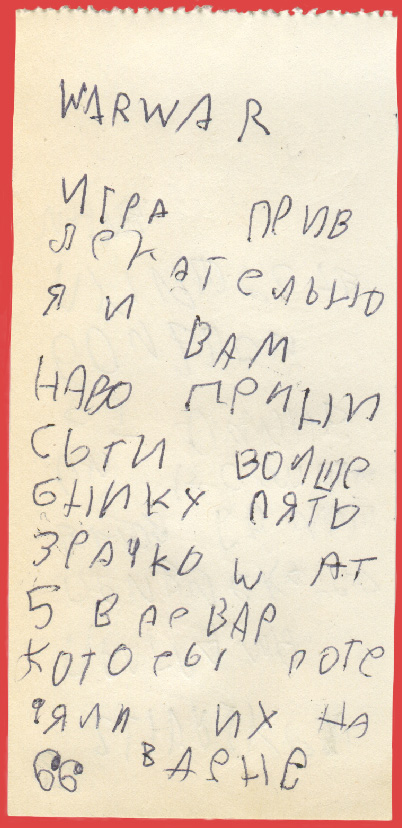 WARWAR
ИГРА ПРИВ
ЛЕКАТЕЛЬНО
Я И ВАМ
НАВО ПРИНИ
СЬТИ ВОИШЕ
БНИКХ ПЯТЬ
ЗРАЧКО W АТ
5 ВАРВАР
КОТОРЫ ПОТЕ
РЯЛИ ИХ НА
ВАРНЕ
66